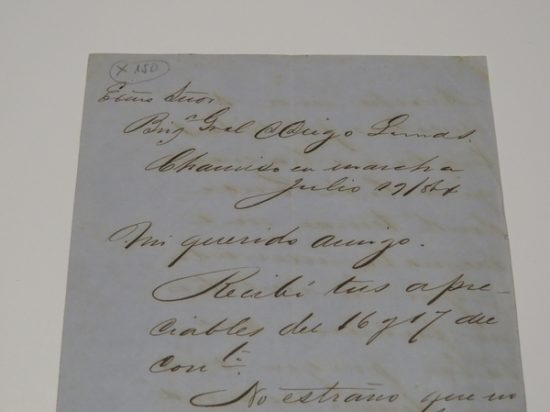 x 150
Exmo Señor
Brigr Gral D Diego Lamas.
en marcha
Julio 22/
Mi querido amigo.
Recibí tus apre-
ciables del 16 y 17 del
corrte.
No estraño que no